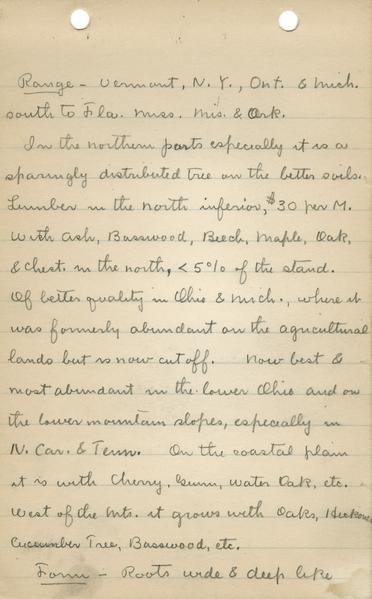 Range - Vermont, N. Y., Ont. & Mich.
south to Fla. Miss. Mis. & Ark.
In the northern parts especially it is a
sparingly distributed tree on the better soils.
Lumber in the north inferior, $30 per M.
With Ash, Basswood, Beech, Maple, Oak,
& Chest. in the north, < 5% of the stand.
Of better quality in Ohio & Mich., where it
was formerly abundant on the agricultural
lands but is now cut off. Now best &
most abundant in the lower Ohio and on
the lower mountain slopes, especially in
N. Car. & Tenn. On the coastal plain
it is with Cherry, Gum, Water Oak, etc.
West of the Mts. it grows with Oaks, Hickories
Cucumber Tree, Basswood, etc.
Form - Roots wide & deep like